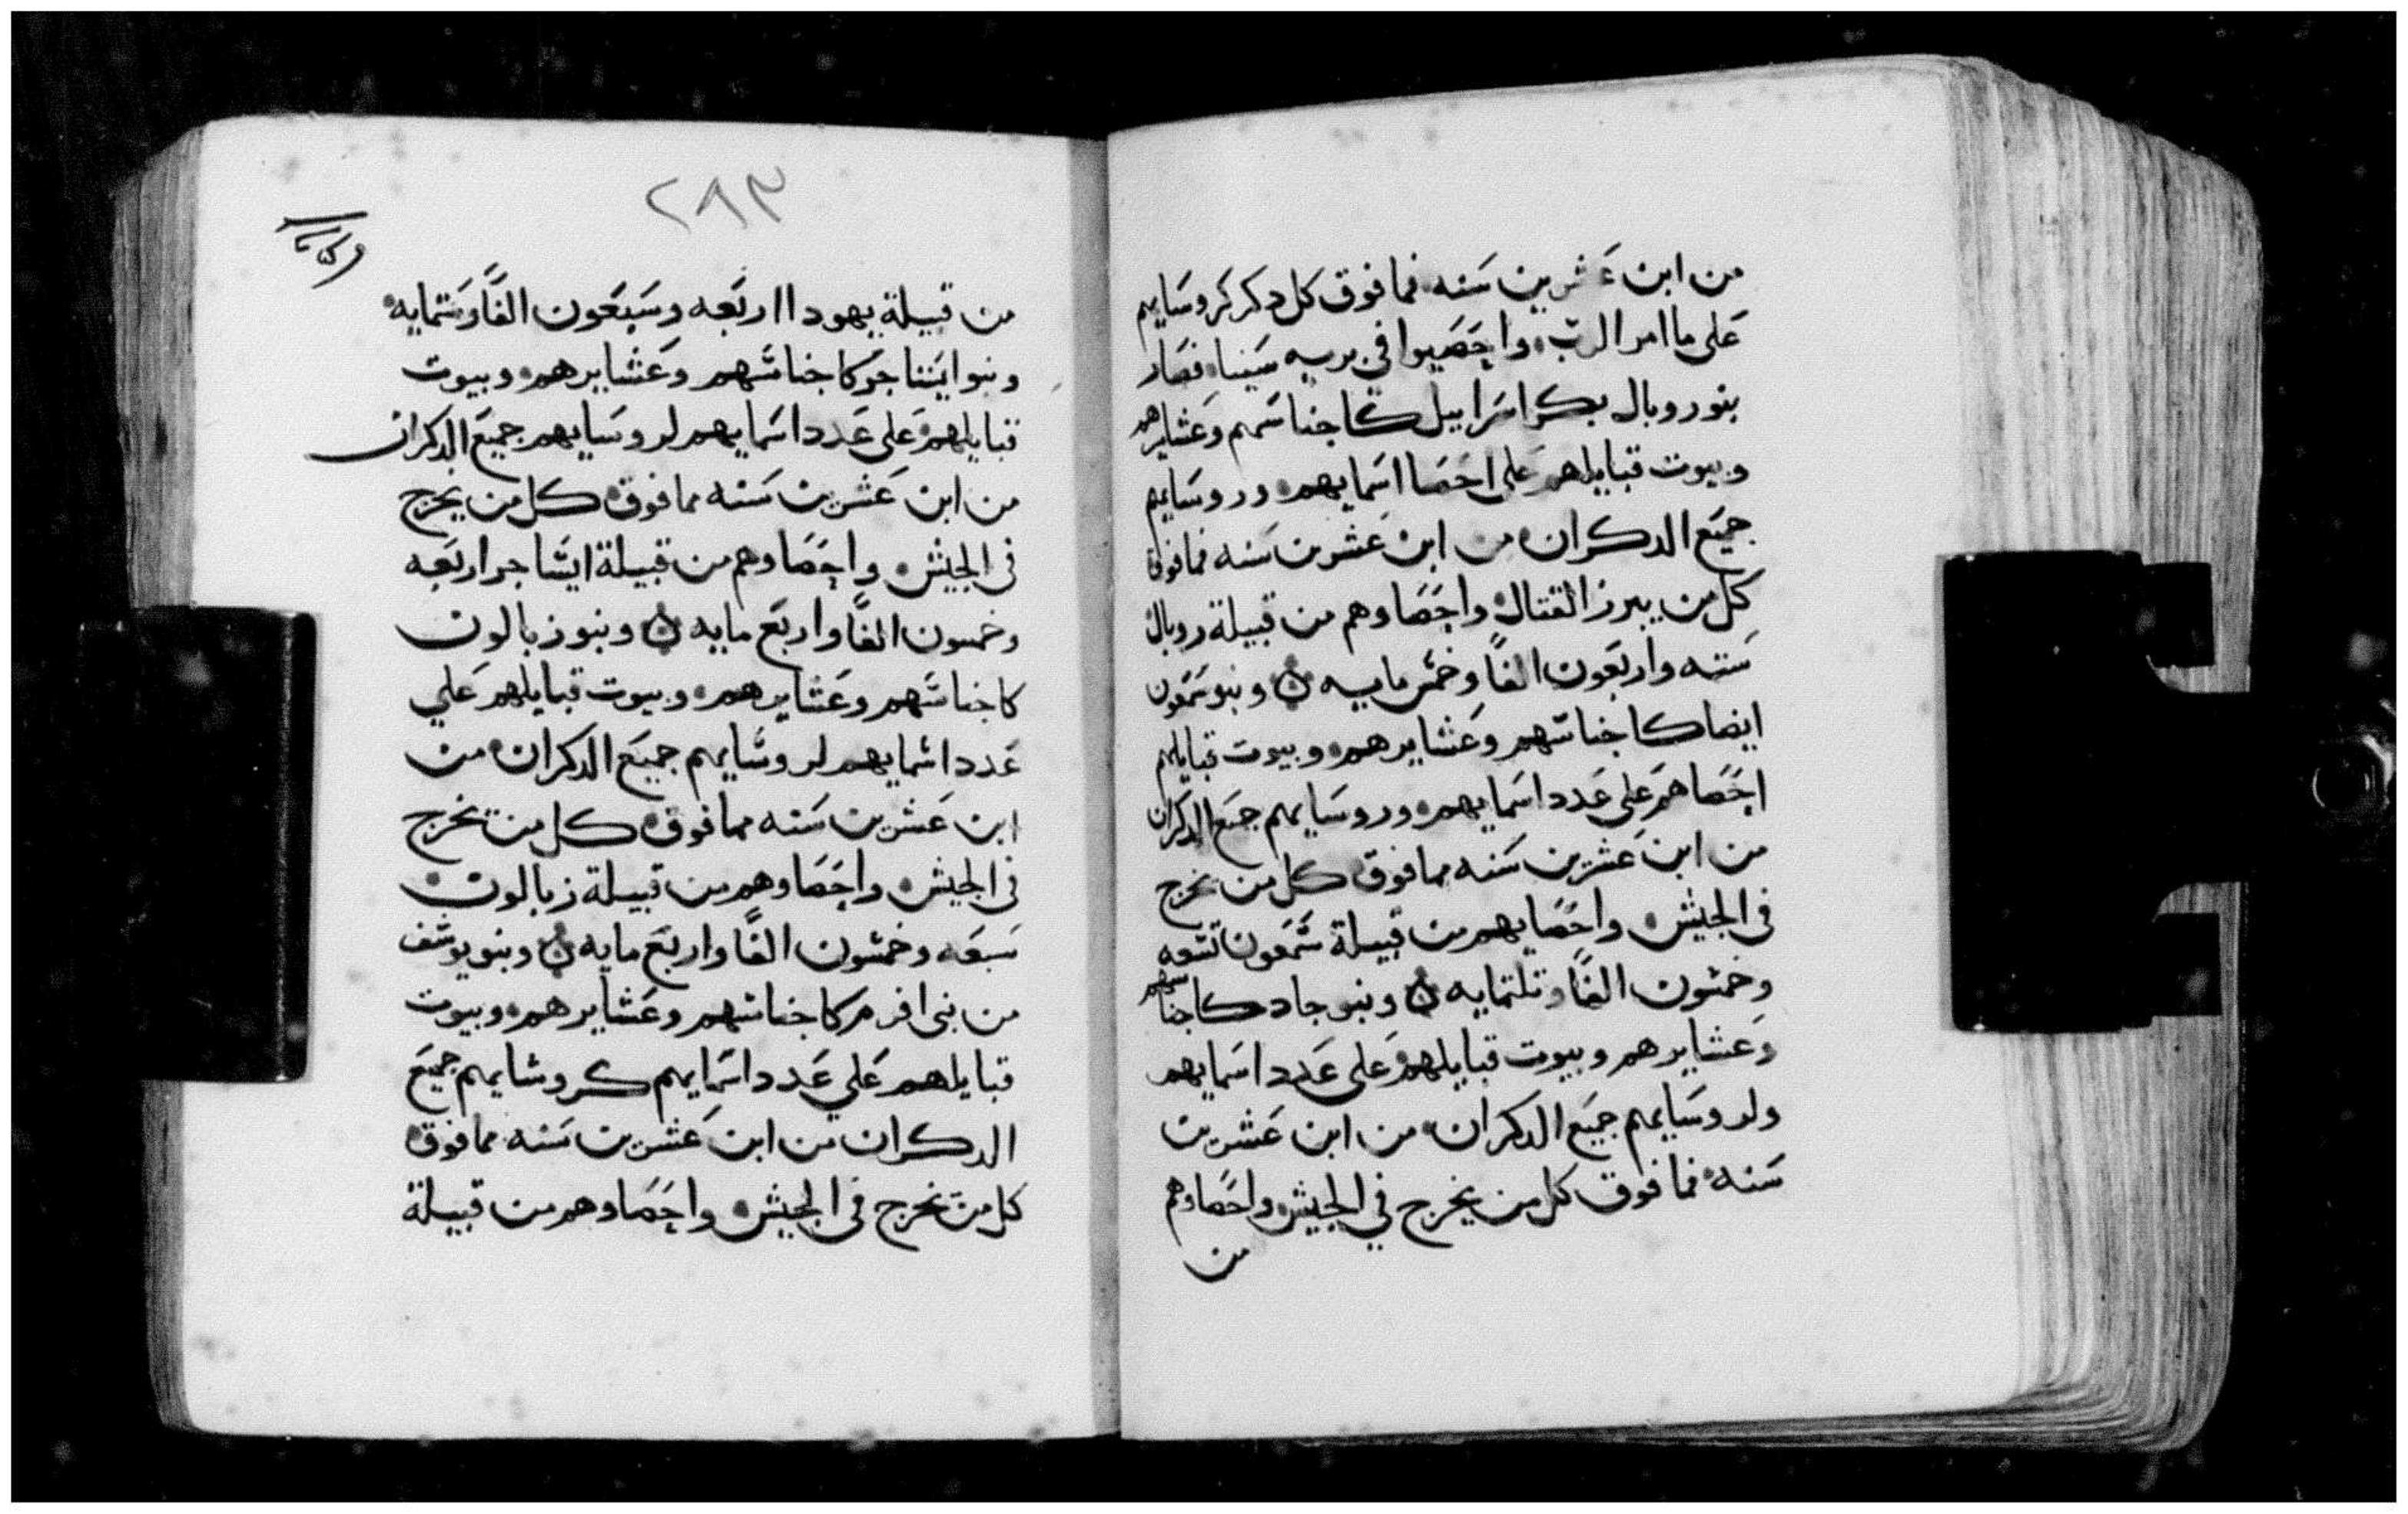 من ابن عشرين سنه فما فوق كل دكر كروسايهم
على ما امر الرب واحصيوا في بريه سينا فصار
بنو روبال بكر اسراييل كاجناسهم وعشايرهم
وبيوت قبايلهم على احصا اسمايهم وروسايهم
جميع الدكران من ابن عشرين سنه فما فوق
كل من يبرز القتال واحصاوهم من قبيلة روبال
سته واربعون الفًا وخمس مايه ن وبنو سمعون
ايضا كاجناسهم وعشايرهم وبيوت قبايلهم
احصاهم على عدد اسمايهم وروسايهم جميع الدكران
من ابن عشرين سنه مما فوق كل من يخرج
في الجيش واحصايهم من قبيلة شمعون تسعه
وخمسون الفًا وتلتمايه ن وبنو جاد كاجناسهم
وعشايرهم وبيوت قبايلهم على عدد اسمايهم
ولروسايهم جميع الدكران من ابن عشرين
سنه فما فوق كل من يخرج في الجيش واحصاوهم
من
٢٨٣
من قبيلة يهودا اربعه وسبعون الفًا وستمايه
وبنو ايسا جر كاجناسهم وعشايرهم وبيوت
قبايلهم على عدد اسمايهم لروسايهم جميع الدكران
من ابن عشرين سنه مما فوق كل من يخرج
في الجيش واحصاوهم من قبيلة ايساجر اربعه
وخمسون الفًا واربع مايه ن وبنو زبالون
كاجناسهم وعشايرهم وبيوت قبايلهم علي
عدد اسمايهم لروسايهم جميع الدكران من
ابن عشرين سنه مما فوق كل من يخرج
في الجيش واحصاوهم من قبيلة زبالون
سبعه وخمسون الفًا واربع مايه ن وبنو يوسف
من بني افرم كاجناسهم وعشايرهم وبيوت
قبايلهم علي عدد اسمايهم كروسايهم جميع
الدكران من ابن عشرين سنه مما فوق
كل من يخرج في الجيش واحصاوهم من قبيلة